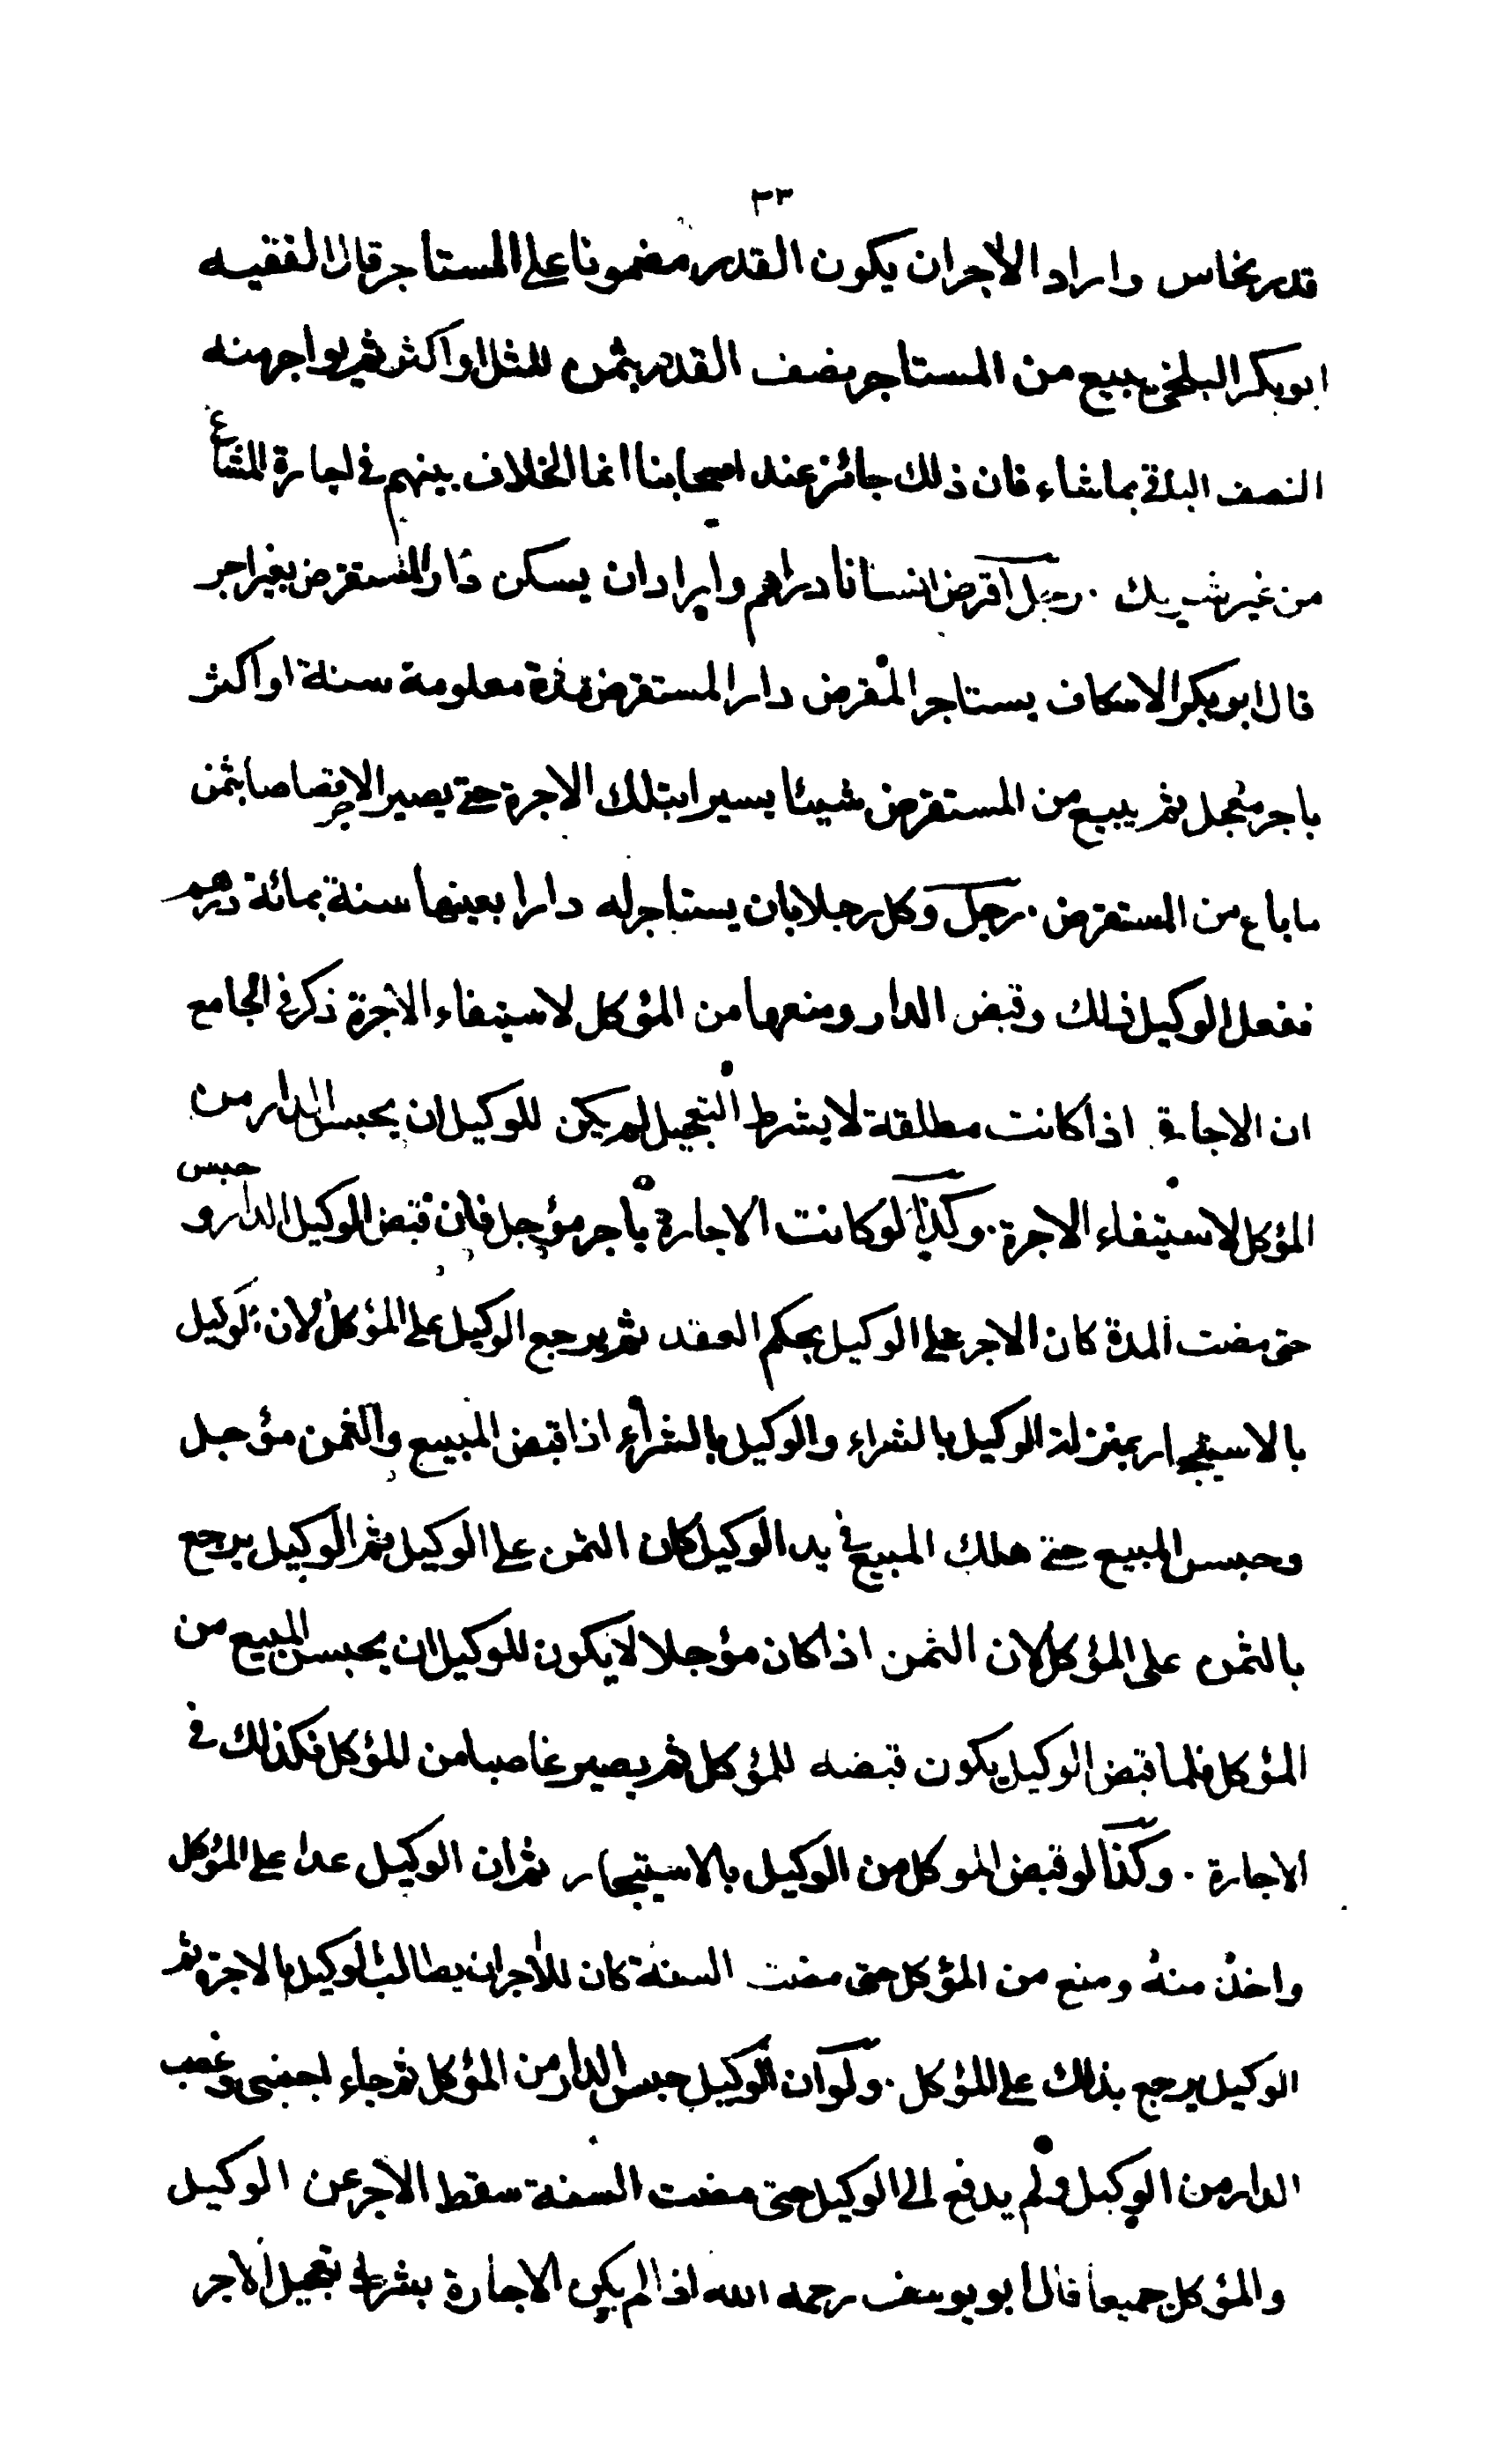 ٣٣
قدر نحاس واراد الآجر ان يكون القدر مضمونا على المستاجر قال الفقيه
ابو بكر البلخي يبيع من المستاجر نصف القدر بثمن المثل او اكثر ثم يواجر منه
النصف الباقي بما شاء فان ذلك جائز عند اصحابنا انما الخلاف بينهم في اجارة المشاع
من غير شريك . رجل اقرض انسانا دراهم واراد ان يسكن دار المستقرض بغير اجر
قال ابو بكر الاسكاف يستاجر المقرض دار المستقرض مدة معلومة سنة او اكثر
باجر معجل ثم يبيع من المستقرض شيئا يسيرا بتلك الاجرة حتى يصير الاجر قصاصا بثمن
ما باع من المستقرض . رجل وكل رجلا بان يستاجر له دارا بعينها سنة بمائة درهم
ففعل الوكيل ذلك وقبض الدار ومنعها من المؤكل لاستيفاء الاجرة ذكر في الجامع
ان الاجارة اذا كانت مطلقة لا بشرط التعجيل لم يكن للوكيل ان يحبس الدار من
المؤكل لاستيفاء الاجرة . وكذا لو كانت الاجارة باجر مؤجل فان قبض الوكيل الدار وحبس
حتى مضت المدة كان الاجر على الوكيل بحكم العقد ثم يرجع الوكيل على المؤكل لان الوكيل
بالاستيجار بمنزلة الوكيل بالشراء والوكيل بالشراء اذا قبض المبيع والثمن مؤجل
وحبس المبيع حتى هلك المبيع في يد الوكيل كان الثمن على الوكيل ثم الوكيل يرجع
بالثمن على المؤكل لان الثمن اذا كان مؤجلا لا يكون للوكيل ان يحبس المبيع من
المؤكل فلما قبض الوكيل يكون قبضه للمؤكل ثم يصير غاصبا من المؤكل فكذلك في
الاجارة . وكذا لو قبض الموكل من الوكيل بالاستيجار ثم ان الوكيل عدا على المؤكل
واخذ منه ومنع من المؤكل حتى مضت السنة كان للآجر ان يطالب الوكيل بالاجرة ثم
الوكيل يرجع بذلك على المؤكل . ولو ان الوكيل حبس الدار من المؤكل ثم جاء اجنبى وغصب
الدار من الوكيل ولم يدفع الى الوكيل حتى مضت السنة سقط الاجر عن الوكيل
والمؤكل جميعا قال ابو يوسف رحمه الله اذا لم يكن الاجارة بشرط تعجيل الاجر